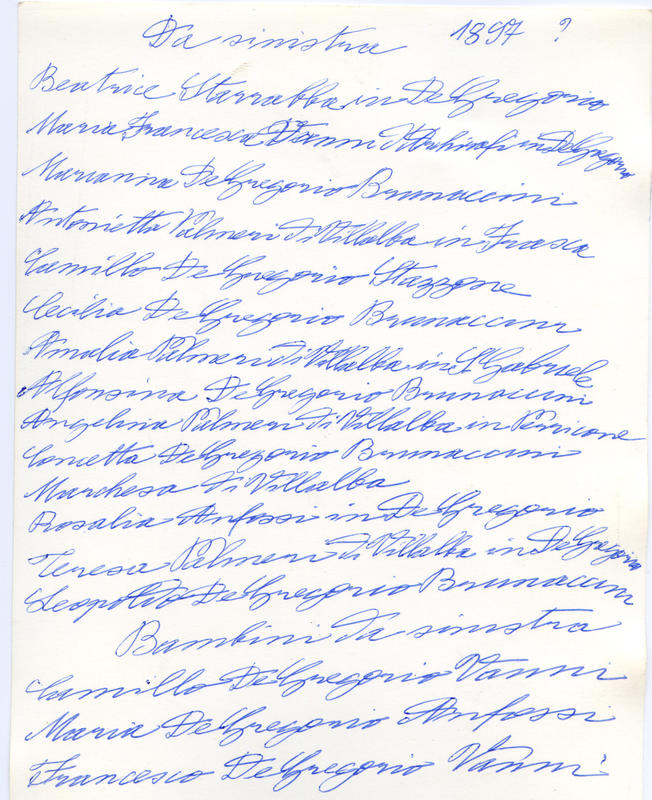 Da sinistra 1897 ?
Beatrice Starrabba in De Gregorio
Maria Francesca Vanni d'Archirafi in De Gregorio
Marianna De Gregorio Brunaccini
Antonietta Palmeri di Villalba in Frasca
Camillo De Gregorio Stazzone
Cecilia De Gregorio Brunaccini
Amalia Palmeri di Villalba in S. Gabriele
Alfonsina De Gregorio Brunaccini
Angelina Palmeri di Villalba in Perricone
Concetta De Gregorio Brunaccini
Marchesa di Villalba
Rosalia Anfossi in De Gregorio
Teresa Palmeri di Villalba in De Gregorio
Leopoldo De Gregorio Brunaccini
Bambini da sinistra
Camillo De Gregorio Vanni
Maria De Gregorio Anfossi
Francesco De Gregorio Vanni